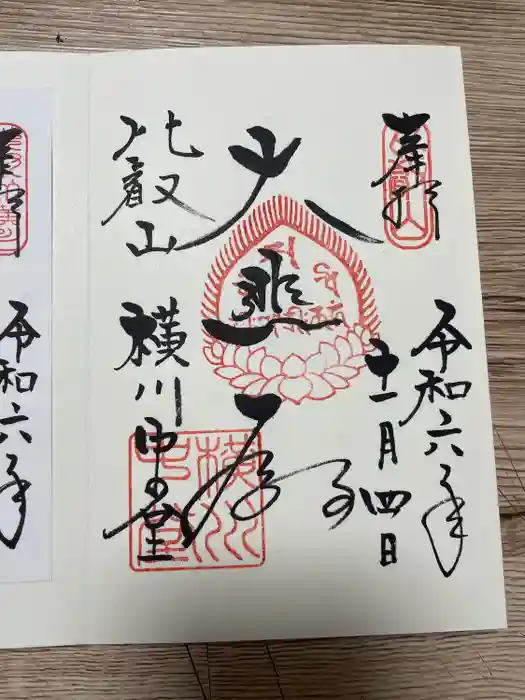 奉拝
令和六年
十一月四日
大悲殿
比叡山
横川中堂
横川中堂
奉拝
令和六年